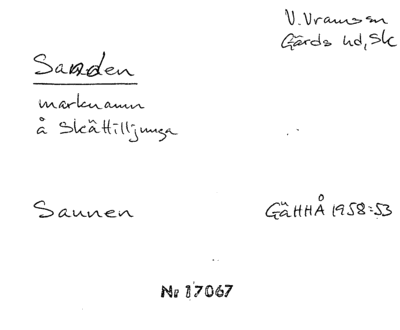 V. Vramsån
Gärds hd, Sk
Sanden
marknamn
å Skättilljunga
Saunen
GäHHÅ 1958:53
Nr 17067